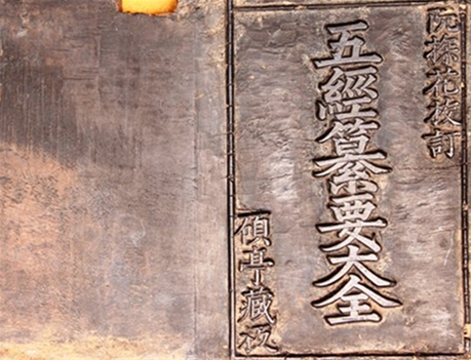 阮探花挍訂
五經纂要大全
碩亭藏板